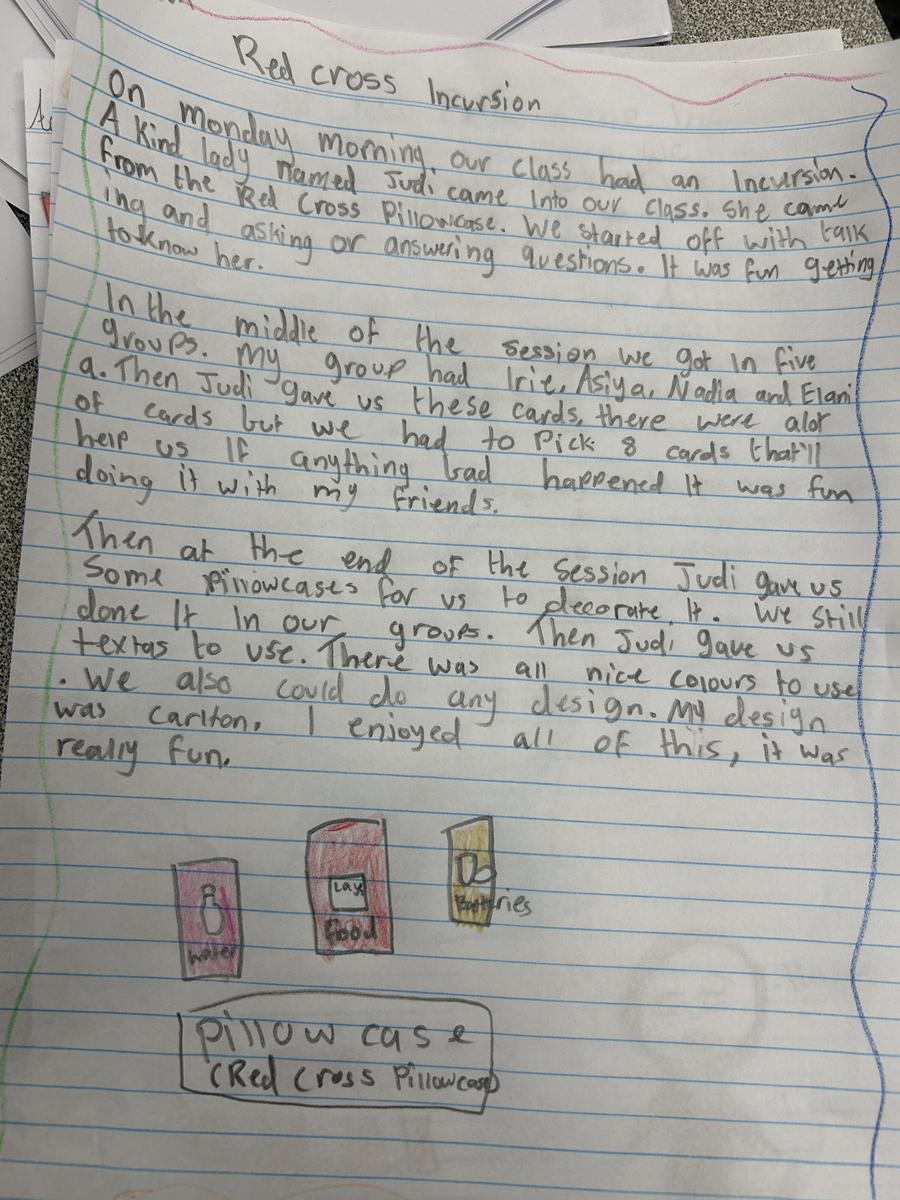 Red cross Incursion
On monday morning our class had an Incursion.
A kind lady named Judi came Into our class. She came
from the Red Cross Pillowcase. We started off with talk
ing and asking or answering questions. It was fun getting
to know her.
In the middle of the session we got In five
groups. My group had Irie, Asiya, Nadia and Elani
a. Then Judi gave us these cards, there were alot
of cards but we had to Pick 8 cards that'll
help us If anything bad happened It was fun
doing it with my Friends.
Then at the end of the Session Judi gave us
Some Pillowcases for us to decorate It. We still
done It In our groups. Then Judi gave us
textas to use. There was all nice colours to use
. We also could do any design. My design
was carlton, I enjoyed all of this, it was
really fun.
water
Lays
food
Battries
Pillow case
(Red Cross Pillowcase)